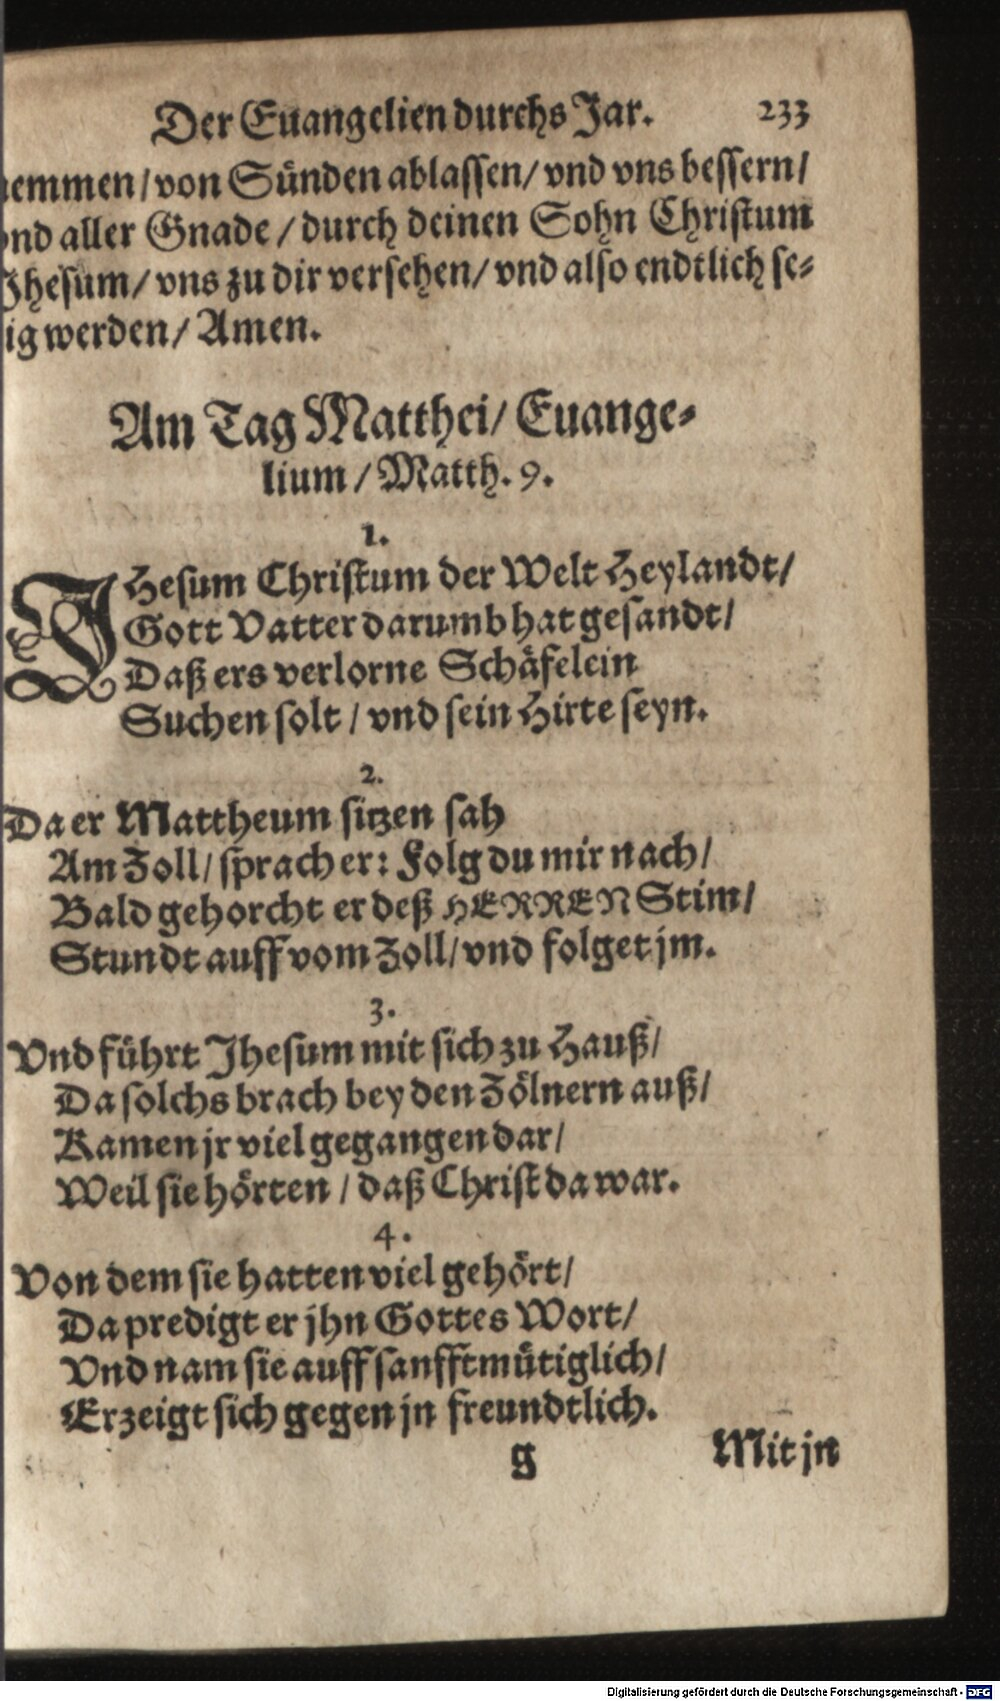 Der Euangelien durchs Jar. 233
nemmen / von Sünden ablassen / vnd vns bessern /
vnd aller Gnade / durch deinen Sohn Christum
Jhesum / vns zu dir versehen / vnd also endtlich se-
lig werden / Amen.
Am Tag Matthei / Euange-
lium / Matth. 9.
1.
JHesum Christum der Welt Heylandt /
Gott Vatter darumb hat gesandt /
Daß ers verlorne Schäfelein
Suchen solt / vnd sein Hirte seyn.
2.
Da er Mattheum sitzen sah
Am Zoll / sprach er: Folg du mir nach /
Bald gehorcht er deß HERREN Stim /
Stundt auff vom Zoll / vnd folget jm.
3.
Vnd führt Jhesum mit sich zu Hauß /
Da solchs brach bey den Zölnern auß /
Kamen jr viel gegangen dar /
Weil sie hörten / daß Christ da war.
4.
Von dem sie hatten viel gehört /
Da predigt er jhn Gottes Wort /
Vnd nam sie auff sanfftmütiglich /
Erzeigt sich gegen jn freundtlich.
g Mit jn
Digitalisierung gefördert durch die Deutsche Forschungsgemeinschaft - DFG